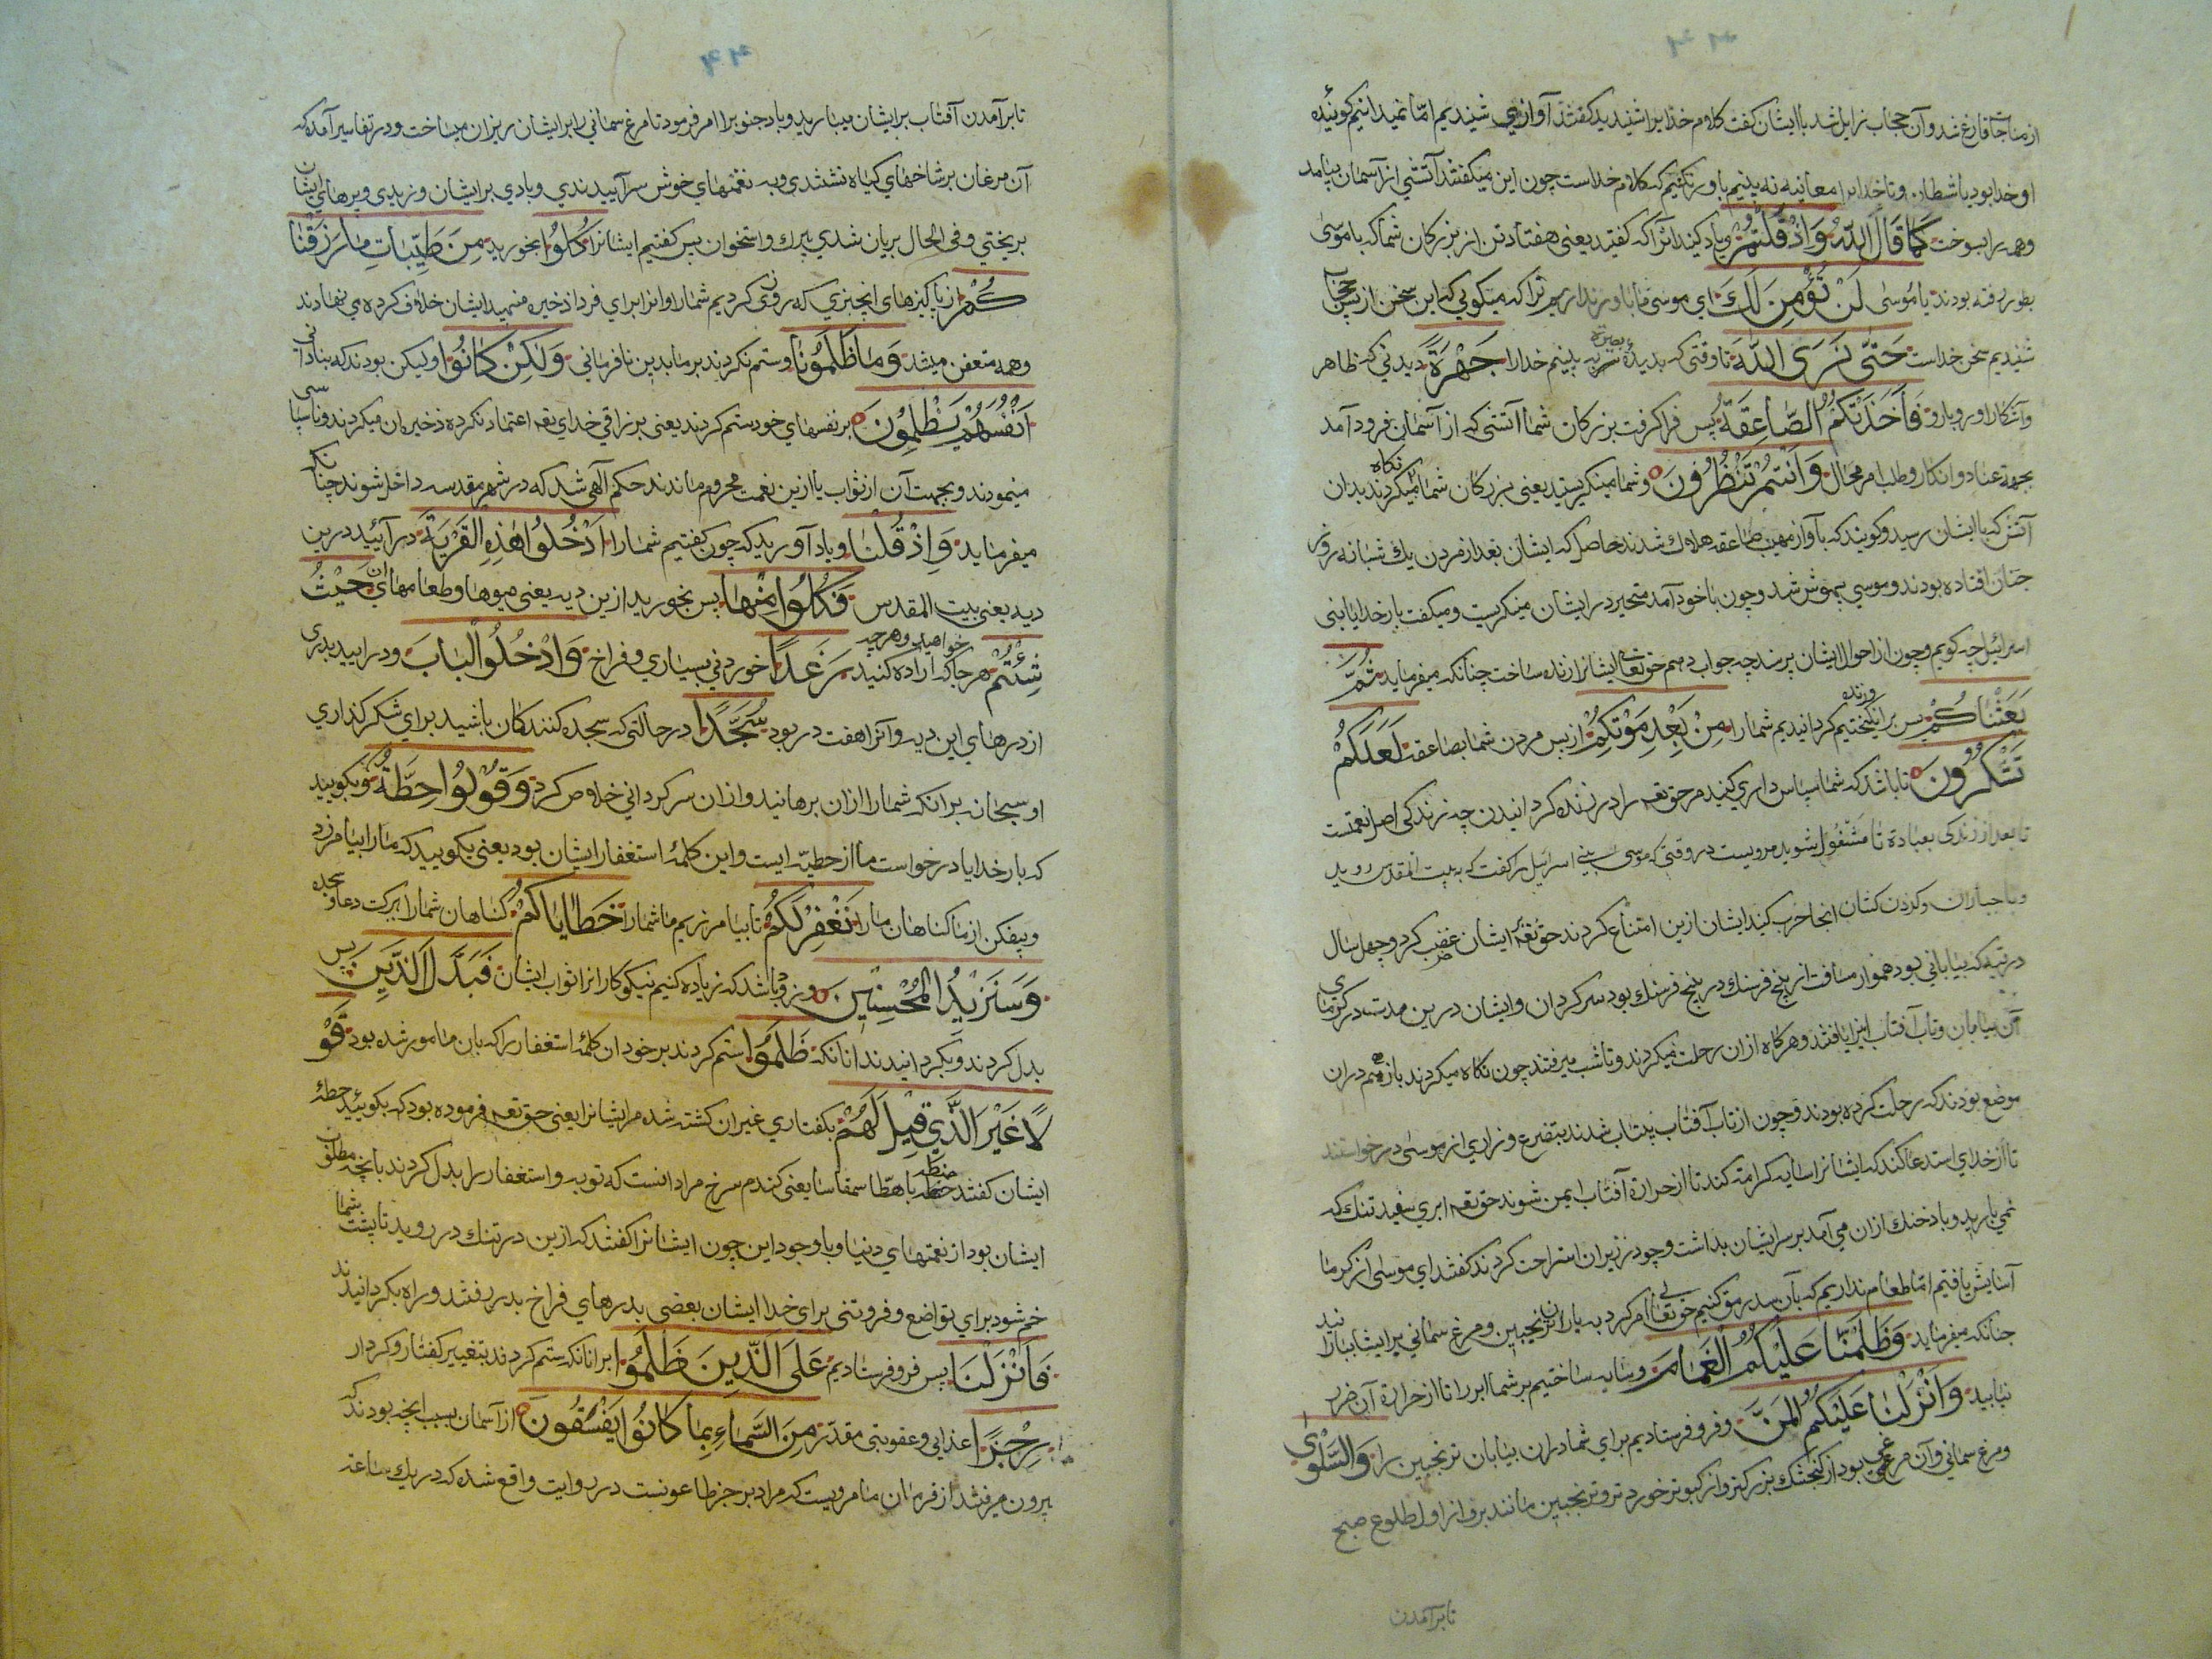 از مناجات فارغ شد و آن حجاب زایل شد با ایشان گفت کلام خدایرا شنیدید گفتند آوازی شنیدیم امّا نمیدانیم گوینده
او خدا بود یا شیطان و تا خدایرا معاینه نه بینیم باور نکنیم که کلام خداست چون این میگفتند آتشی از آسمان بیامد
وهمه را بسوخت کَمَا قَالَ اللّٰهُ وَاِذْ قُلْتُمْ و یاد کنید انرا که گفتید یعنی هفتاد تن از بزرگان شما که با موسی
بطور رفته بودند یَا مُوسٰی لَنْ نُؤْمِنَ لَكَ ای موسی ما باور نداریم ترا که میگویی که این سخن از پس حجاب
شنیدیم سخن خداست حَتّٰی نَرَی اللّٰهَ تا وقتی که بدیدۀ سر به بینیم خدارا جَهْرَةً دیدنی که ظاهر
وآشکارا و رویارو فَاَخَذَتْکُمُ الصَّاعِقَةُ پس فرا گرفت بزرگان شمارا آتشی که از آسمان فرود آمد
بجهة عناد و انکار و طلب امر محال وَاَنْتُمْ تَنْظُرُونَ و شما مینگریستید یعنی بزرگان شما نگاه میکردند بدان
آتش که با ایشان رسید و گویند که بآواز مهیب صاعقه هلاك شدند حاصل که ایشان بعد از مردن یك شبانه روز
چنان افتاده بودند و موسی بیهوش شد و چون با خود آمد متحیر در ایشان مینگریست و میگفت بار خدایا بنی
اسرائیل چه گویم و چون از احوال ایشان پرسند چه جواب دهم حق تعالی ایشانرا زنده ساخت چنانکه میفرماید ثُمَّ
بَعَثْنَاکُمْ پس برانگیختیم و زنده گردانیدیم شمارا مِنْ بَعْدِ مَوْتِکُمْ از پس مردن شما بصاعقه لَعَلَّکُمْ
تَشْکُرُونَ تا باشد که شما سپاس داری کنید مر حق تعه را در زنده گردانیدن چه زندگی اصل نعمتست
تا بعد از زندگی بعبادة ما مشغول شوید مرویست در وقتی که موسی بنی اسرائیل را گفت که به بیت المقدس روید
و با جباران و گردن کشان انجا حرب کنید ایشان ازین امتناع کردند حق تعه بر ایشان غضب کرد و چهل سال
در تیه که بیابانی بود هموار مسافت از پنج فرسنك در پنج فرسنك بود سرگردان و ایشان درین مدت در گرمای
آن بیابان و تاب آفتاب ایذا یافتند و هر گاه ازان رحلت میکردند و تا شب میرفتند چون نگاه میکردند باز هم دران
موضع بودند که رحلت کرده بودند و چون از تاب آفتاب بیتاب شدند بتضرع و زاری از موسی درخواستند
تا از خدای استدعا کند که ایشانرا سایه کرامة کند تا از حرارة آفتاب ایمن شوند حق تعه ابری سفید تنك که
نمی بارید و باد خنك ازان می آمد بر سر ایشان بداشت و چون در زیر ان استراحت کردند گفتند ای موسی از گرما
آسایش یافتیم امّا طعام نداریم که بآن سد رمق کنیم حق تعالی امر کرد به باران ترنجبین و مرغ سمانی بر ایشان
چنانکه میفرماید وَظَلَّلْنَا عَلَیْکُمُ الْغَمَامَ و سایه ساختیم بر شما ابر را تا از حرارة آن ضرر
نیابید وَاَنْزَلْنَا عَلَیْکُمُ الْمَنَّ و فرو فرستادیم برای شما دران بیابان ترنجبین را وَالسَّلْوٰی
و مرغ سمانی و آن مرغی بود از گنجشك بزرگتر و از کبوتر خوردتر و ترنجبین مانند برو از اول طلوع صبح
تا برآمدن
۴۳
تا برآمدن آفتاب بر ایشان میبارید و باد جنوبرا امر فرمود تا مرغ سمانی را بر ایشان ریزان میساخت و در تفاسیر آمده که
آن مرغان بر شاخهای گیاه نشتندی و به نغمهای خوش سرآییدندی و بادی بر ایشان وزیدی و پرهای ایشان
بریختی و فی الحال بریان شدی بی رگ و استخوان پس گفتیم ایشانرا کُلُوا بخورید مِنْ طَیِّبَاتِ مَا رَزَقْنَا
کُمْ از پاکیزهای انچیزی که روزی کردیم شمارا و انرا برای فردا ذخیره منهید ایشان خلاف کرده می نهادند
و همه متعفن میشد وَمَا ظَلَمُونَا و ستم نکردند بر ما بدین نافرمانی وَلٰکِنْ کَانُوا و لیکن بودند که بنادانی
اَنْفُسَهُمْ یَظْلِمُونَ بر نفسهای خود ستم کردند یعنی بر زراقی خدای تعه اعتماد نکرده ذخیره ان میکردند و ناسپاسی
مینمودند و بجهت آن از ثواب یا ازین نعمت محروم ماندند حکم آلهی شد که در شهر مقدسه داخل شوند چنانکه
میفرماید وَاِذْ قُلْنَا و یاد آورید که چون گفتیم شمارا اُدْخُلُوا هٰذِهِ الْقَرْیَةَ درآیید درین
دیه یعنی بیت المقدس فَکُلُوا مِنْهَا پس بخورید ازین دیه یعنی میوها و طعامهای ان حَیْثُ
شِئْتُمْ هر جا که اراده کنید خواهید و هرچه رَغَدًا خوردنی بسیاری و فراخ وَادْخُلُوا الْبَابَ و درآیید بدری
از درهای این دیه و آنرا هفت در بود سُجَّدًا در حالتی که سجده کنندگان باشید برای شکرگذاری
او سبحانه برانکه شمارا ازان برهانید و ازان سرگردانی خلاص کرد وَقُولُوا حِطَّةٌ و بگویید
که بار خدایا درخواست ما از حطیه ایست و این کلمۀ استغفار ایشان بود یعنی بگویید که ما را بیامرزد
و بیفکن از ما گناهان مارا نَغْفِرْ لَکُمْ تا بیامرزیم ما شمارا خَطَایَاکُمْ گناهان شمارا ببرکت دعا و سجده
وَسَنَزِیدُ الْمُحْسِنِینَ و زود باشد که زیاده کنیم نیکوکارانرا ثواب ایشان فَبَدَّلَ الَّذِینَ پس
بدل کردند و بگردانیدند انانکه ظَلَمُوا ستم کردند بر خود ان کلمۀ استغفار را که بان مامور شده بود قَوْ
لًا غَیْرَ الَّذِی قِیلَ لَهُمْ بگفتاری غیر ان گفته شده مر ایشانرا یعنی حق تعه فرموده بود که بگویید حطة
ایشان گفتند حنطة یا هطّا سمقاسا یعنی گندم سرخ مراد انست که توبه و استغفار را بدل کردند بانچه مطلوب
ایشان بود از نعمتهای دنیا و با وجود این چون ایشانرا گفتند که ازین در تنك در روید تا پشت شما
خم شود برای تواضع و فروتنی برای خدا ایشان بعضی بدرهای فراخ بدر رفتند و راه بگردانیدند
فَاَنْزَلْنَا پس فرو فرستادیم عَلَی الَّذِینَ ظَلَمُوا بر انانکه ستم کردند بتغییر گفتار و کردار
رِجْزًا عذابی و عقوبتی مقدّر مِنَ السَّمَاءِ بِمَا کَانُوا یَفْسُقُونَ از آسمان بسبب انچه بودند که
بیرون میرفتند از فرمان ما مرویست که مراد برجز طاعونست در روایت واقع شده که در یك ساعة